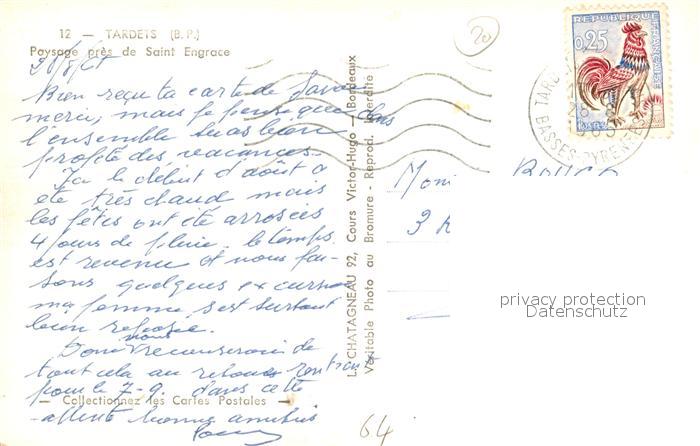 12 — TARDETS (B.P.)
Paysage près de Saint Engrace
Bien reçu ta carte de
merci, mais je pense que dans
l'ensemble tu as bien
profité des vacances.
Ici le début d'août a
été très chaud mais
les fêtes ont été arrosées
4 jours de pluie. le temps
est revenu et nous fai-
sons quelques excurs
ma femme s'est surtout
bien reposée.
Donc nous recauserons de
tout cela au retour
pour le 7-9. dans cette
attente bonnes amitiés
— Collectionnez les Cartes Postales —
LA CHATAGNEAU 92, Cours Victor-Hugo - Bordeaux
Véritable Photo au Bromure - Reprod. Interdite
20
REPUBLIQUE FRANÇAISE
0,25
TARDETS
BASSES-PYRENEES
Moni
3
privacy protection
Datenschutz
64